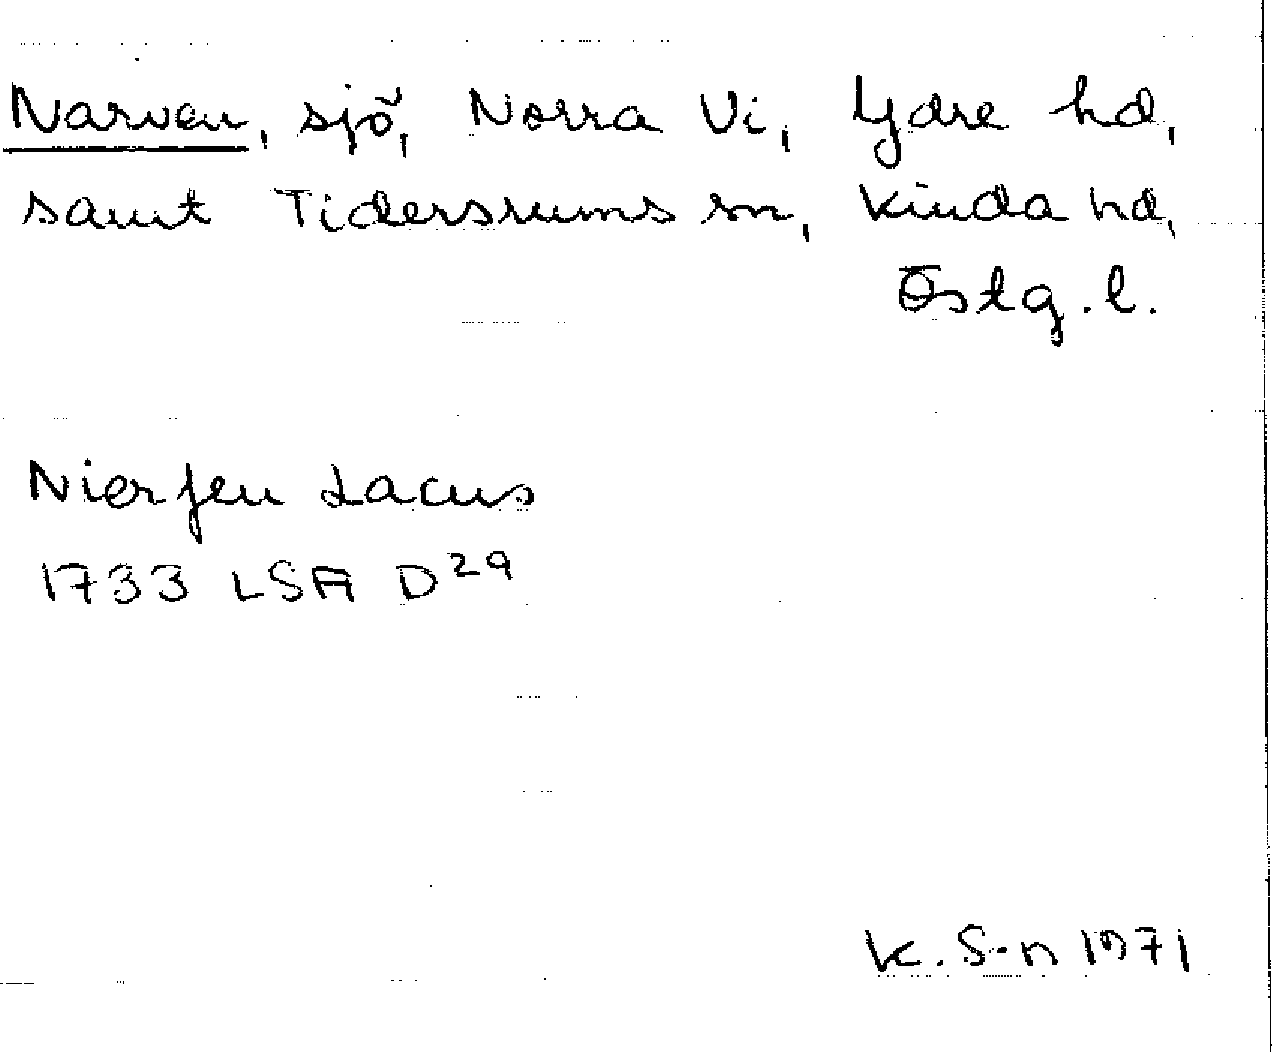 Narven, sjö, Norra Vi, Ydre hd,
samt Tidersrums sn, Kinda hd,
Östg. l.
Nierfen Lacus
1733 LSA D29
K. S-n 1971